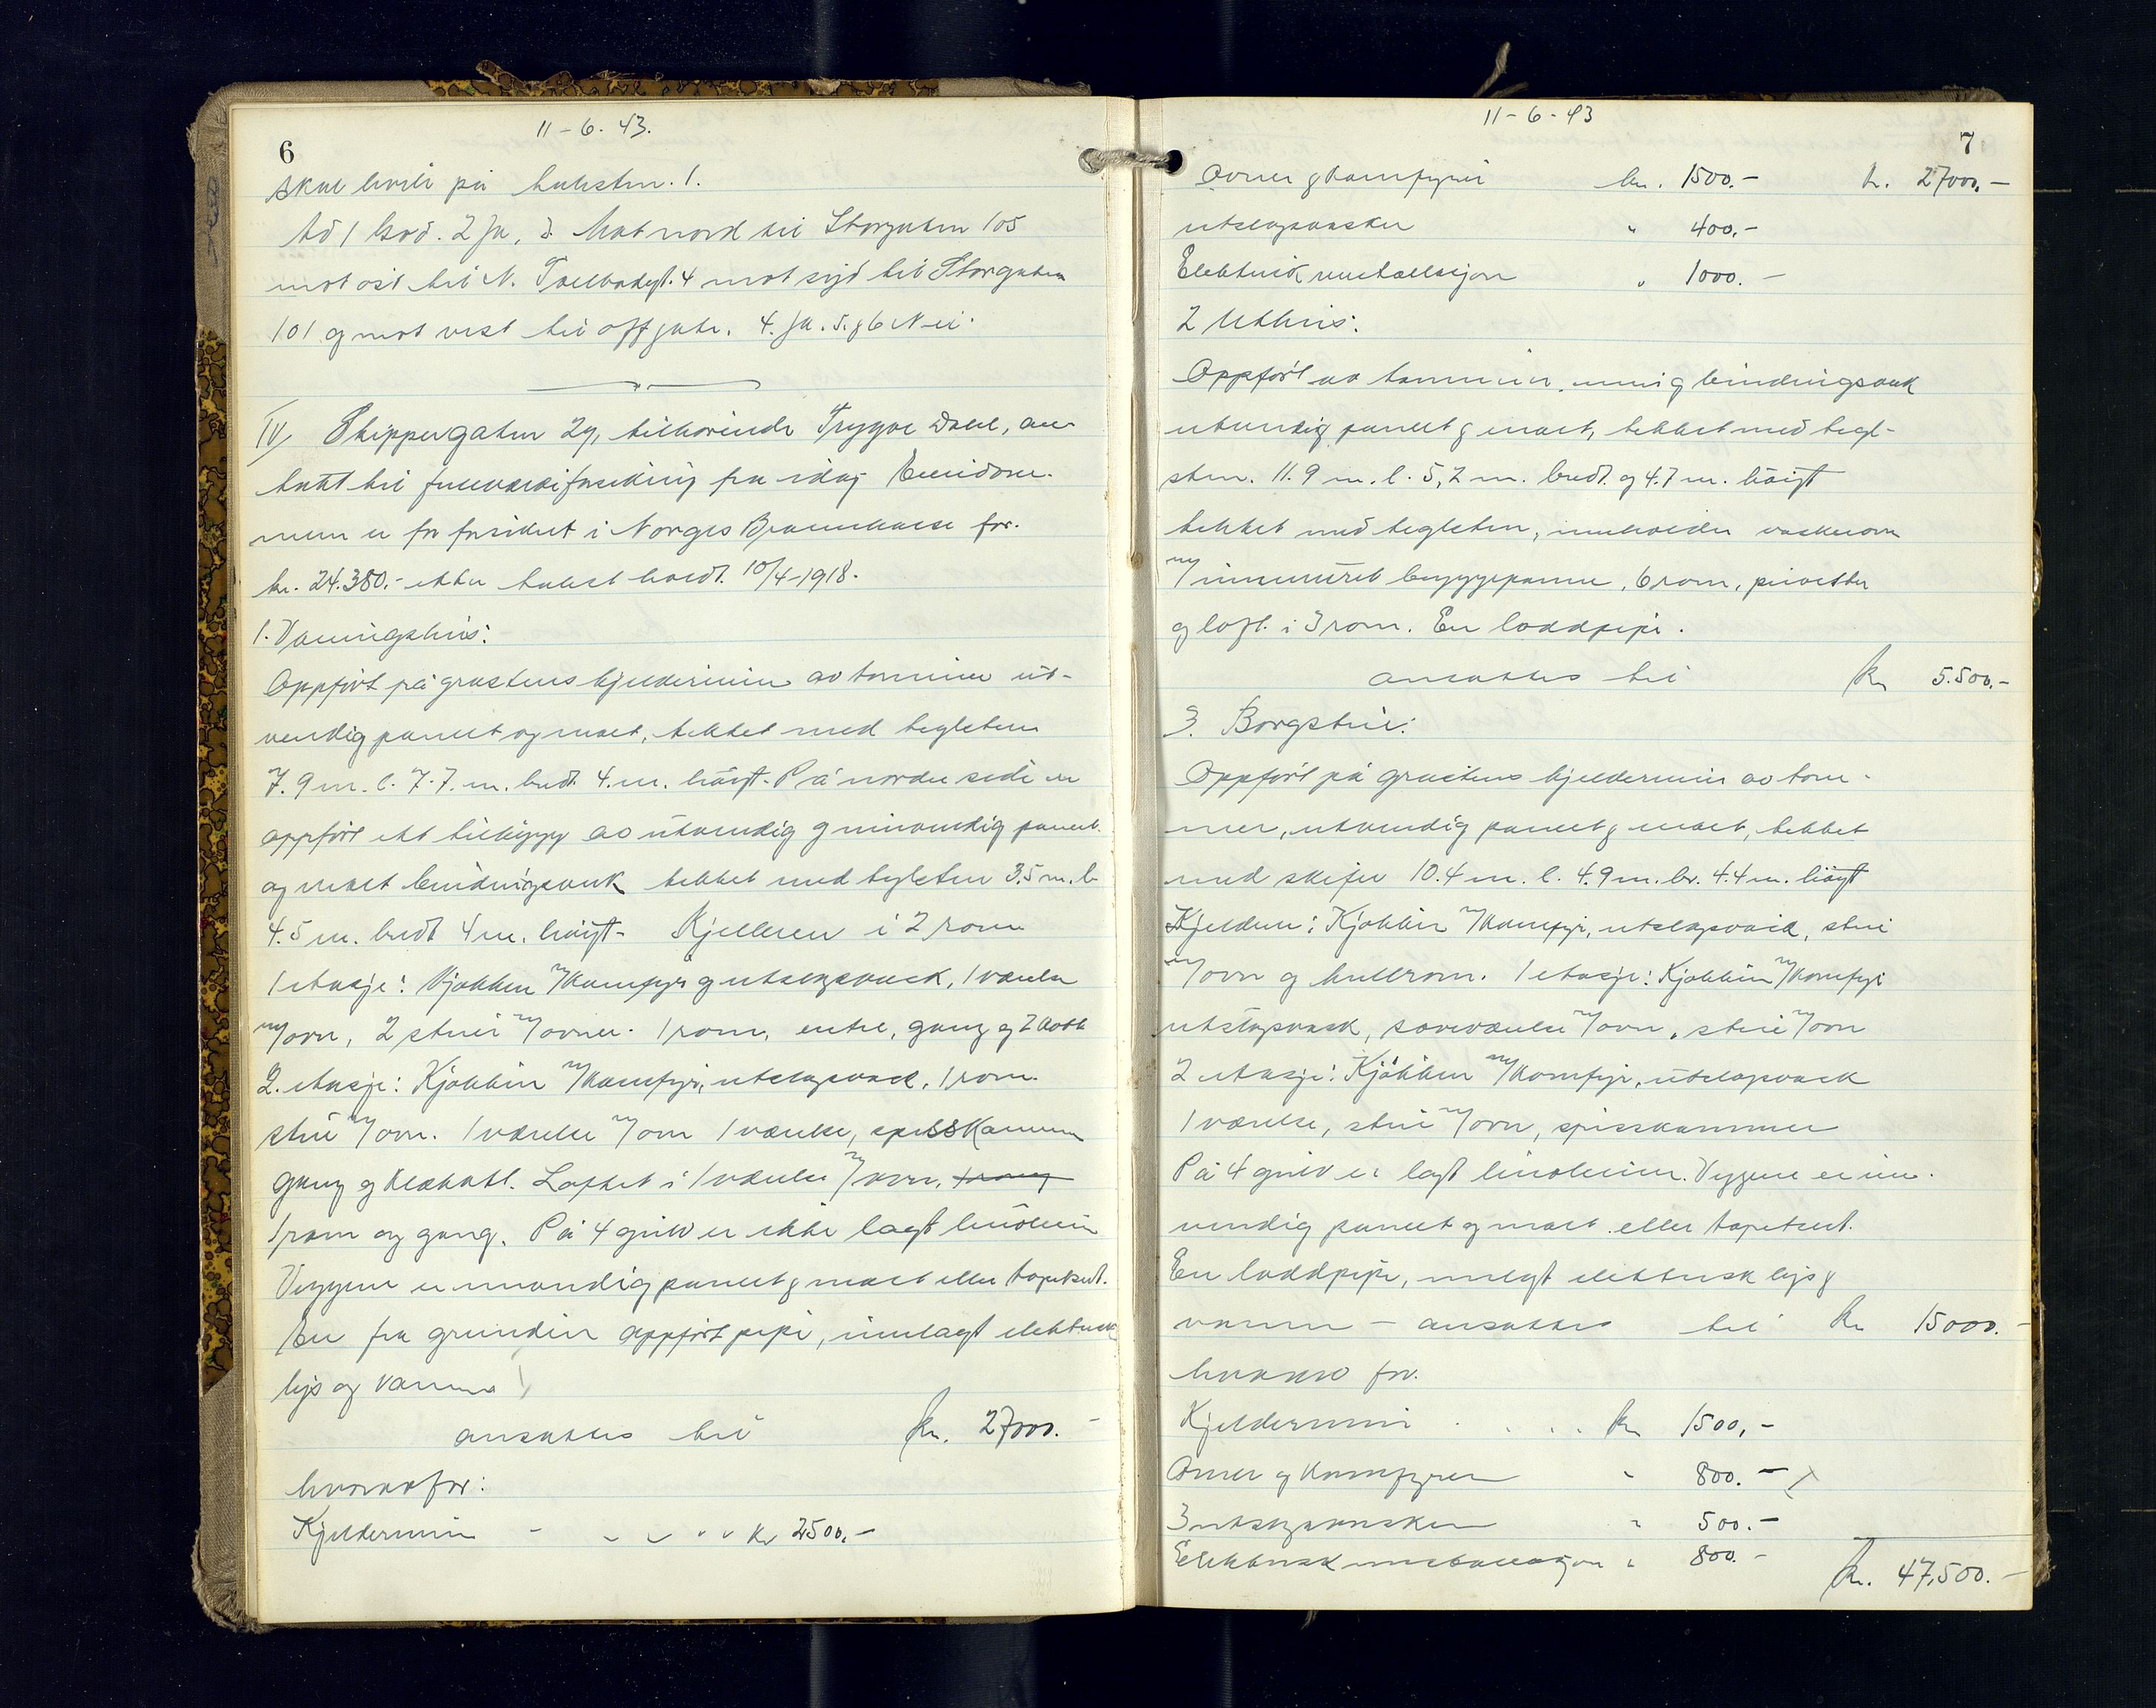 11-6-43.
6
skal hvile på taksten. 1.
Ad 1 God. 2 Ja, 3. Mot nord til Storgaten 105
mot øst til N. Tollbodgt. 4 mot syd til Storgaten
101 og mot vest til off gate. 4. Ja. 5. & 6 Nei.
IV Skippergaten 29, tilhørende Trygve Dahl, an-
tatt til fullverdiforsikring fra idag. Eiendom-
men er før forsikret i Norges Brannkasse for
kr. 24.380.- etter takst havdt. 10/4-1918.
1. Våningshus:
Oppført på gråstens kjeldermur av tømmer ut-
vendig panelt og malt, tekket med teglsten
7.9 m. l. 7.7. m. bredt 4. m. høigt. På nordre side er
oppført ett tilbygg av utvendig og innvendig panelt
og malt bindingsverk tekket med teglsten 3,5 m. l.
4.5 m. bredt 4 m. høigt - Kjelleren i 2 rom
1 etasje: Kjøkken m/komfyr og utslagsvask, 1 værelse
m/ovn, 2 stuer m/ovner. 1 rom, entre, gang og 2 kott
2. etasje: Kjøkken m/komfyr, utslagsvask, 1 rom.
stue m/ovn. 1 værelse m/ovn 1 værelse, spisskammer
gang og klekott. Loftet i 1 værelse m/ovn,
1 rom og gang. På 4 gulv er ikke lagt linoleum
Veggene er innvendig panelt & malt eller tapetsert.
En fra grunden oppført pipe, innlagt elektrisk
lys og vann
ansattes til kr. 27000.-
hvorav for:
Kjeldermur - kr 2500.-
11-6-43
7
Ovner & komfyrer kr. 1500.- kr. 27000.-
utslagsvasker " 400.-
Elektrisk installasjon " 1000.-
2 Uthus:
Oppført av tømmer, mur og bindingsverk
utvendig panelt & malt, tekket med tegl-
sten. 11.9 m. l. 5,2 m. bredt. og 4.7 m. høigt
tekket med teglsten, inneholder vaskerom
m/innmuret bryggepanne, 6 rom, privetter
og loft i 3 rom. En loddpipe.
ansattes til kr 5.500.-
3. Borgstue:
Oppført på gråstens kjeldermur av tøm-
mer, utvendig panelt & malt, tekket
med skifer 10.4 m. l. 4.9 m. br. 4.4 m. høigt
Kjelderen: Kjøkken m/komfyr, utslagsvask, stue
m/ovn og kullrom. 1 etasje: Kjøkken m/komfyr
utslagsvask, soveværelse m/ovn, stue m/ovn
2 etasje: Kjøkken m/komfyr, utslagsvask
1 værelse, stue m/ovn, spisskammer
På 4 gulv er lagt linoleum. Veggene er inn-
vendig panelt og malt eller tapetsert.
En loddpipe, innlagt elektrisk lys &
vann - ansattes til kr 15000.-
hvorav for.
Kjeldermur . . . . kr 1500,-
Ovner og komfyrer " 800.-
3 utslagsvasker " 500.-
Elektrisk installasjon " 800.-
kr. 47,500.-